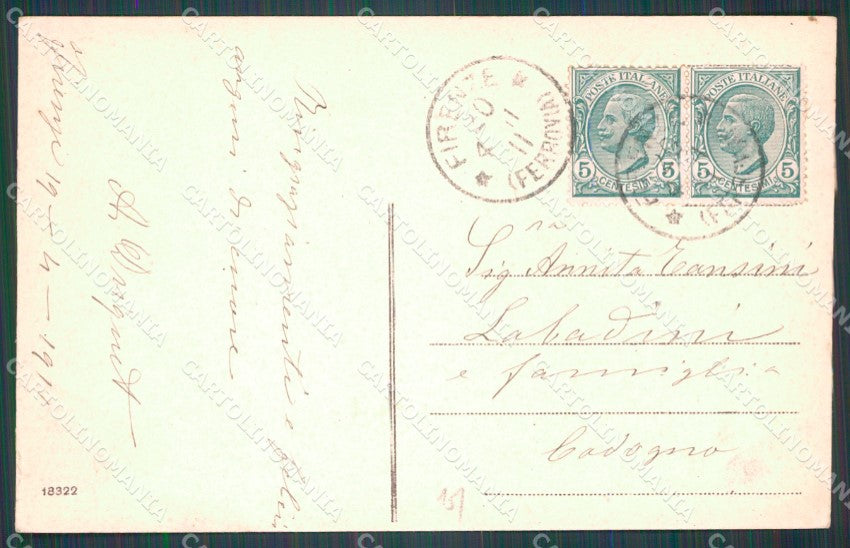 Ringraziamenti e saluti
auguri di cuore
Firenze 19-4-1911
FIRENZE
(FERROVIA)
20
4
11
POSTE ITALIANE
5 CENTESIMI 5
POSTE ITALIANE
5 CENTESIMI 5
Sig.ra Annita Tansini
Labadini
e famiglia
Codogno
18322
CARTOLINOMANIA